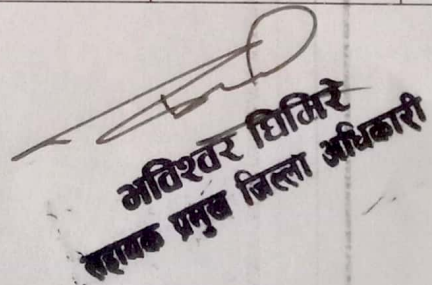 भविश्वर घिमिरे
सहायक प्रमुख जिल्ला अधिकारी